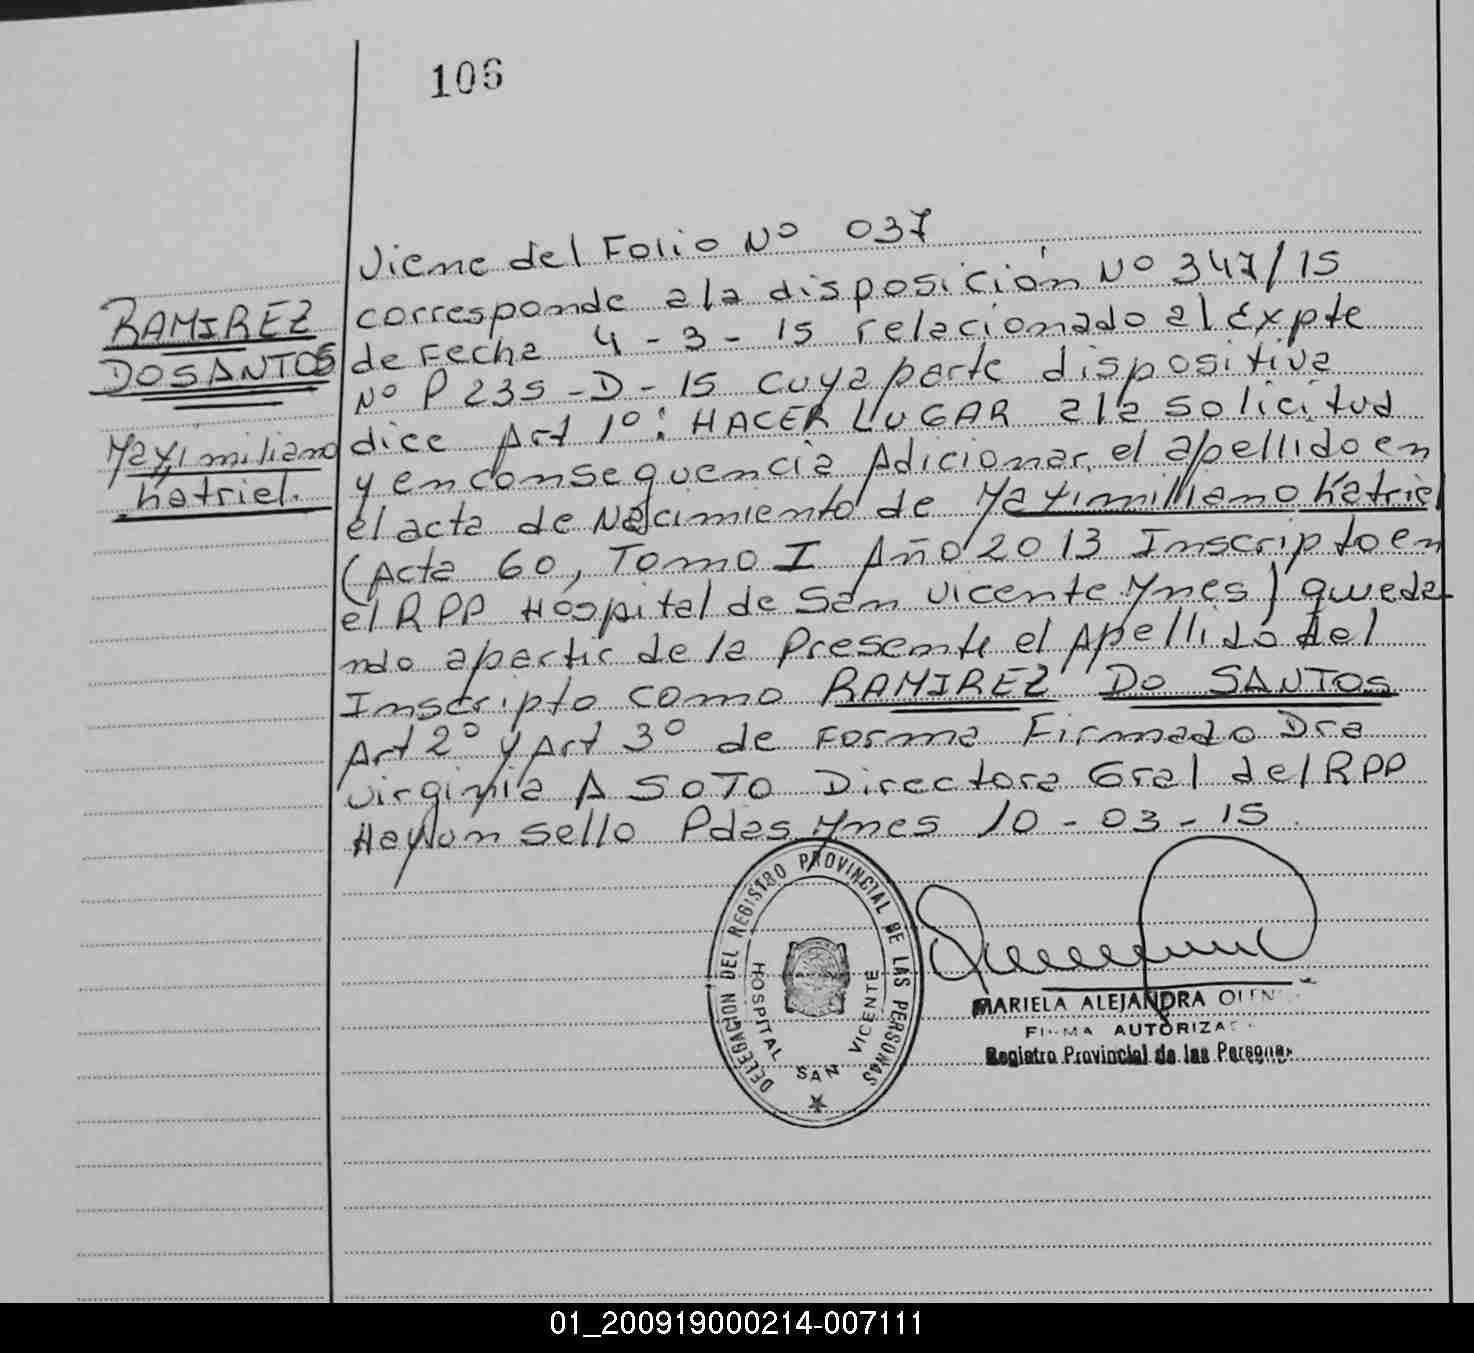 106
RAMIREZ
DO SANTOS
Maximiliano
Katriel.
Viene del Folio Nº 037
corresponde a la disposición Nº 347/15
de Fecha 4-3-15 relacionado al Expte
Nº P 235-D-15 cuya parte dispositiva
dice Art 1º: HACER LUGAR a la solicitud
y en consequencia Adicionar el apellido en
el acta de Nacimiento de Maximilliano Katriel
(Acta 60, Tomo I Año 2013 Inscripto en
el RPP Hospital de San Vicente Mnes) queda
ndo apartir de la Presente el Apellido del
Inscripto como RAMIREZ DO SANTOS
Art 2º y Art 3º de Forma Firmado Dra
Virginia A SOTO Directora Gral del RPP
Hay un sello Pdas Mnes 10-03-15.
DELEGACION DEL REGISTRO PROVINCIAL DE LAS PERSONAS
HOSPITAL SAN VICENTE
MARIELA ALEJANDRA
FIRMA AUTORIZADA
Registro Provincial de las Personas
01_200919000214-007111